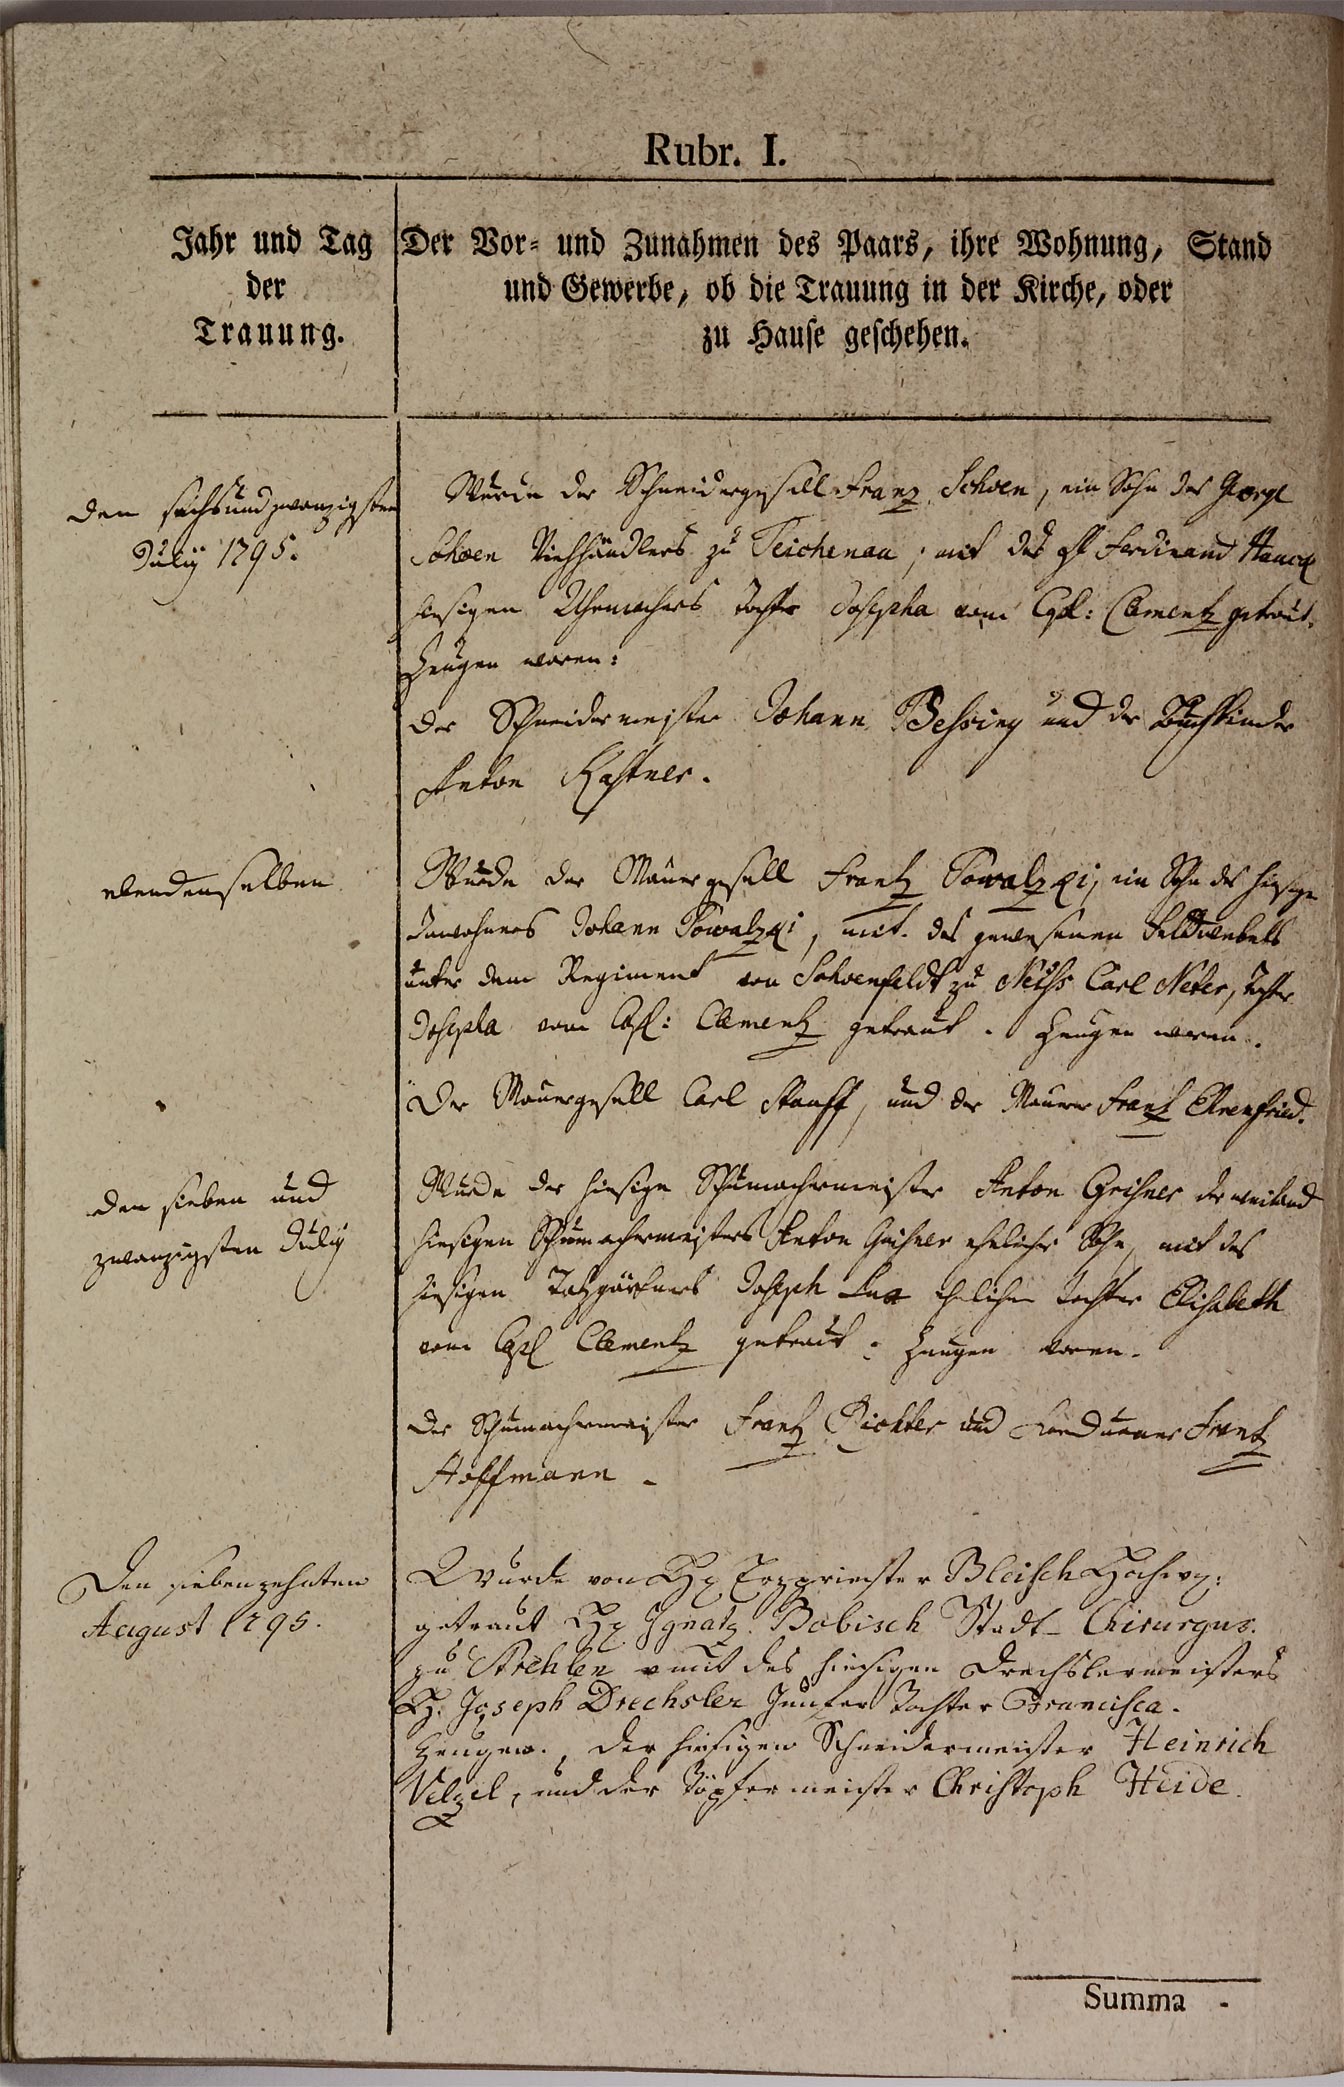 Rubr. I.
Jahr und Tag
der
Trauung.
Der Vor- und Zunahmen des Paars, ihre Wohnung, Stand
und Gewerbe, ob die Trauung in der Kirche, oder
zu Hause geschehen.
den sechs und zwanzigsten
Julij 1795.
Wurde der Schneidergesell Franz Schoen, ein Sohn des George
Schoen Viehhändlers zu Teichenau, mit des H Ferdinand Hauck
hiesigen Uhrmachers Tochter Josepha vom Cpl: Clementz getraut.
Zeugen waren:
Der Schneidermeister Johann Bessing und der Buchbinder
Anton Kastner.
ebendenselben
Wurde der Mauergesell Frantz Powalzki, ein Sohn des hiesigen
Inwohners Johann Powalzki, mit des gewesenen Feldwebels
unter dem Regiment von Schoenfeldt zu Neiss Carl Neter, Tochter
Josepha vom Cpl: Clementz getraut. Zeugen waren.
Der Mauergesell Carl Stauff, und der Maurer Frantz Ehrenfried.
den sieben und
zwanzigsten Julij
Wurde der hiesige Schumachermeister Anton Grisner der weiland
hiesigen Schumachermeisters Anton Grisner ehelicher Sohn, mit des
hiesigen Joseph ehelichen Tochter Elisabeth
vom Cpl Clementz getraut: Zeugen waren.
Der Schumachermeister Frantz Richter und Frantz
Hoffmann.
Den siebenzehnten
August 1795.
Wurde von H Erzpriester Bleisch Hochw:
getraut H Ignatz Bobisch Stadt-Chirurgus.
zu Strehlen mit des hiesigen Drechslermeisters
H. Joseph Drechsler Junfer Tochter Francisca.
Zeugen., der hiesigen Schneidermeister Heinrich
Velzel, und der Töpfermeister Christoph Heide.
Summa -